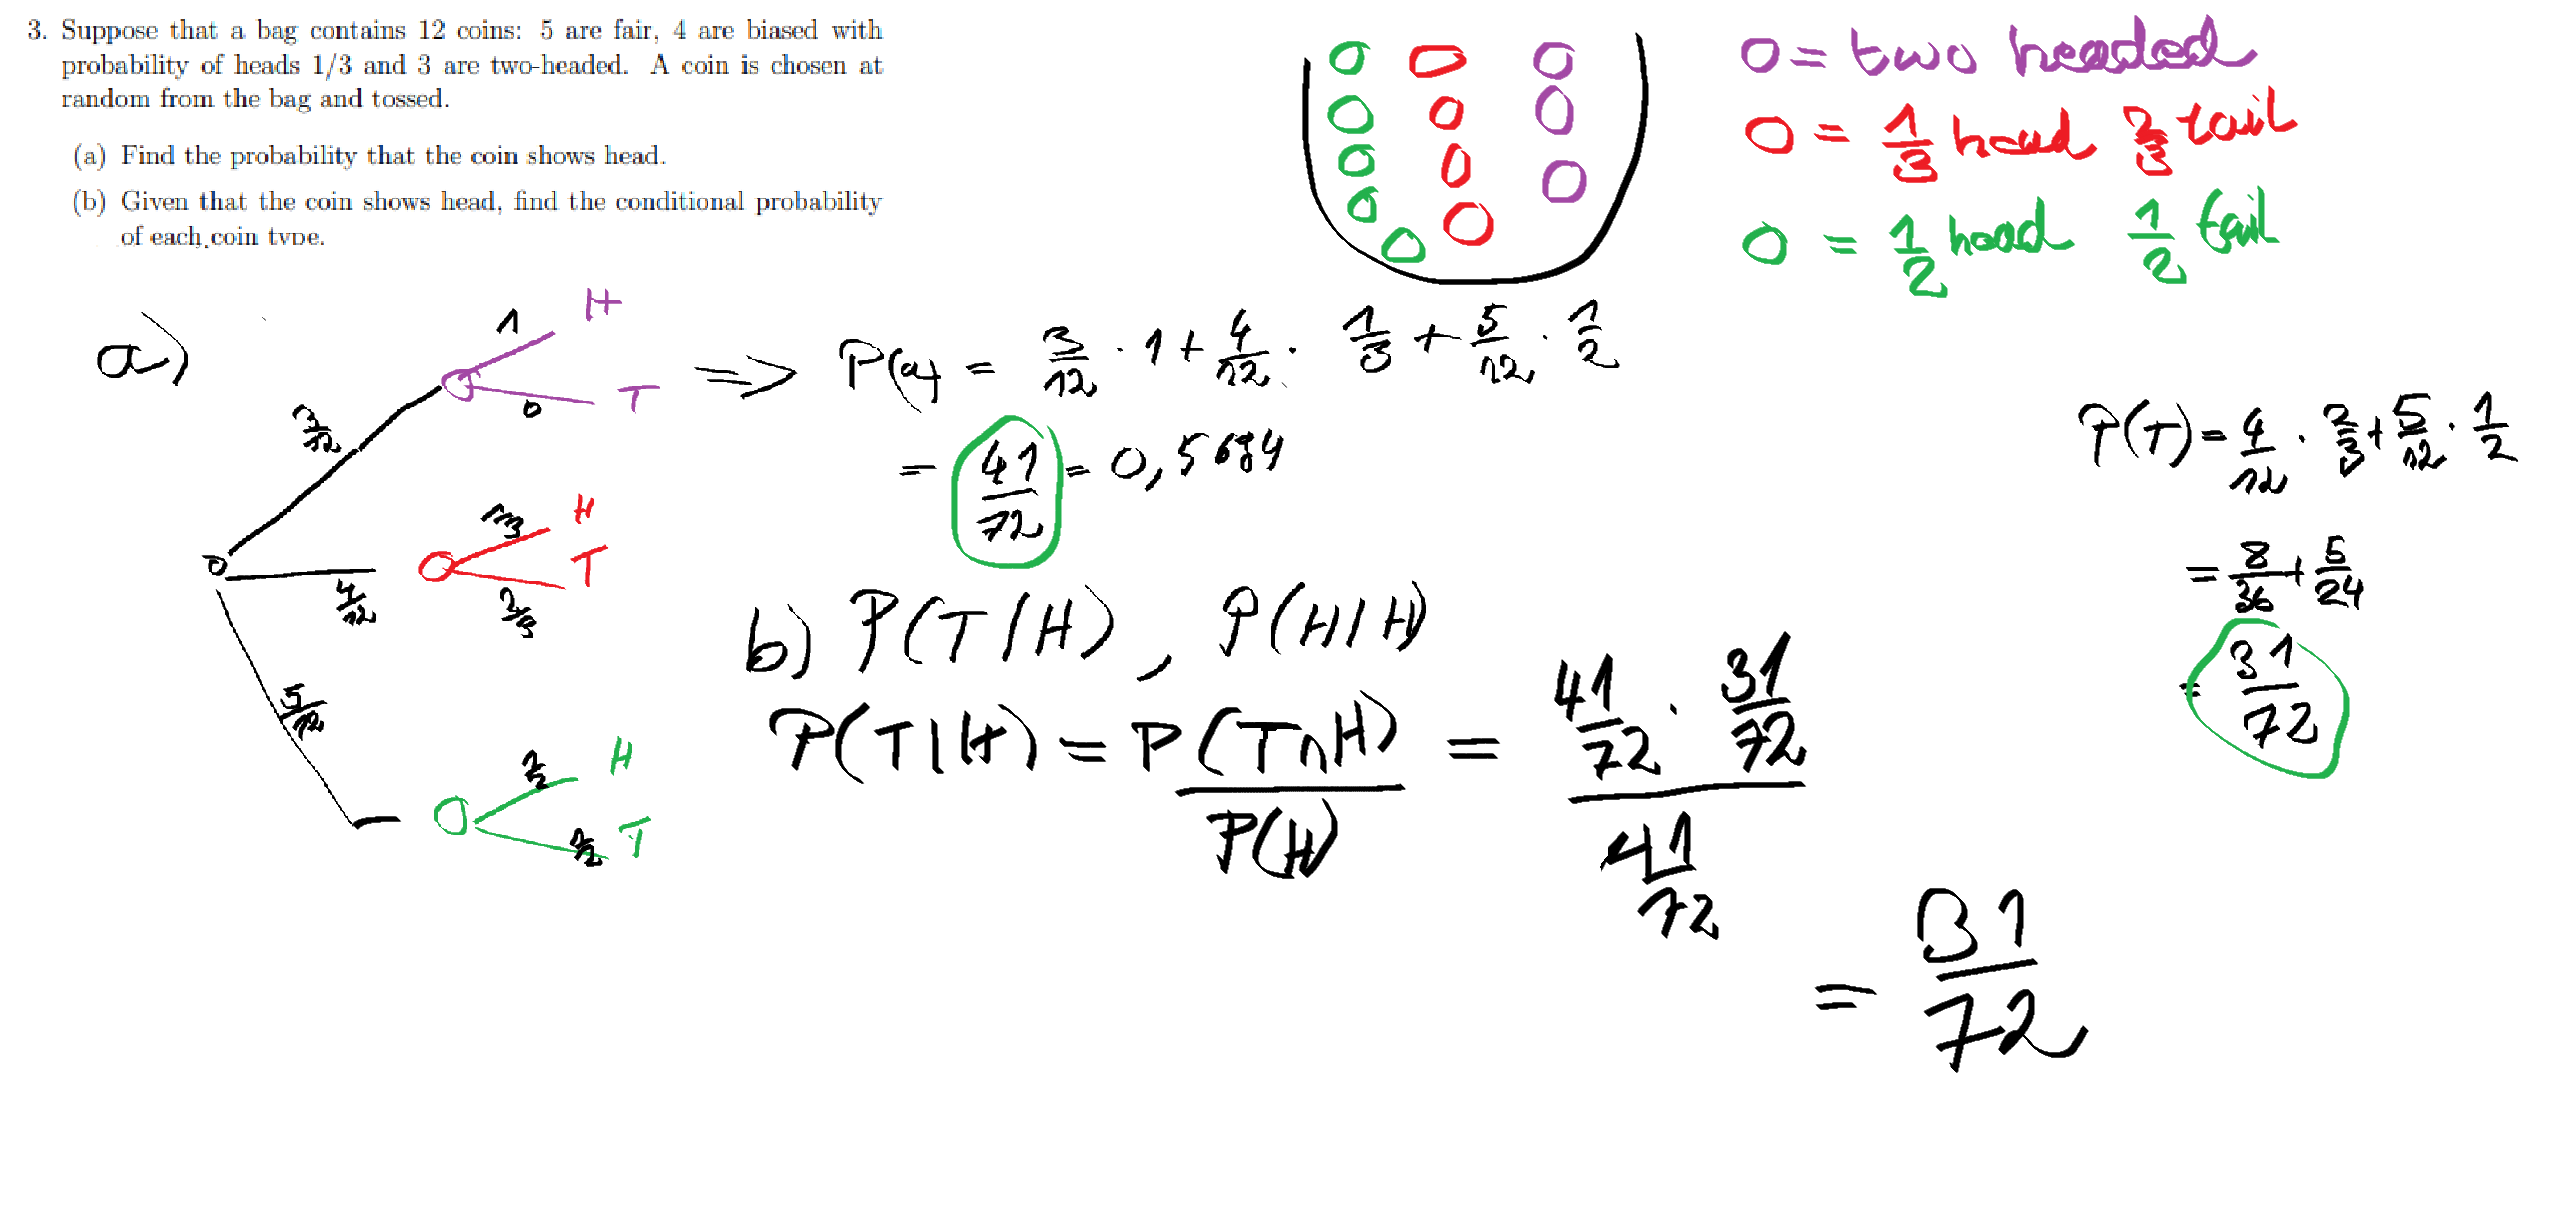 3. Suppose that a bag contains 12 coins: 5 are fair, 4 are biased with
probability of heads 1/3 and 3 are two-headed. A coin is chosen at
random from the bag and tossed.
(a) Find the probability that the coin shows head.
(b) Given that the coin shows head, find the conditional probability
of each coin type.
0 = two headed
0 = 1/3 head 2/3 tail
0 = 1/2 head 1/2 tail
a)
3/12
1 H
0 T
4/12
1/3 H
2/3 T
5/12
1/2 H
1/2 T
=> P(a) = 3/12 · 1 + 4/12 · 1/3 + 5/12 · 1/2
= 41/72 = 0,5694
P(T) = 4/12 · 2/3 + 5/12 · 1/2
= 8/36 + 5/24
= 31/72
b) P(T/H), P(H/H)
P(T|H) = P(T∩H)/P(H) = (41/72 · 31/72)/(41/72)
= 31/72